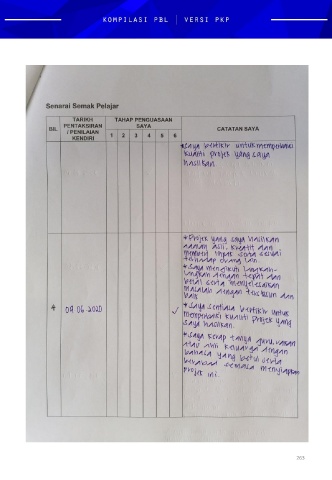 KOMPILASI PBL | VERSI PKP
Senarai Semak Pelajar
BIL
TARIKH
PENTAKSIRAN
/ PENILAIAN
KENDIRI
TAHAP PENGUASAAN
SAYA
1 2 3 4 5 6
CATATAN SAYA
* Saya berfikir untuk memperbaiki
kualiti projek yang saya
hasilkan.
4
09.06.2020
✓
* Projek yang saya hasilkan
adalah asli, kreatif dan
memberi impak serta sesuai
terhadap orang lain.
* Saya mengikuti langkah-
langkah dengan tepat dan
betul serta menyelesaikan
masalah dengan tersusun dan
baik.
* Saya sentiasa berfikir untuk
memperbaiki kualiti projek yang
saya hasilkan.
* Saya kerap tanya guru, rakan
atau ahli keluarga dengan
bahasa yang betul serta
semasa menyiapkan
projek ini.
263